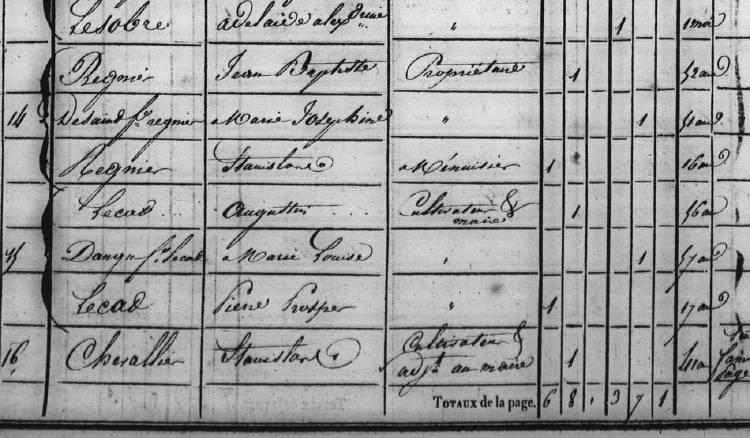 Lesobre adelaide alexdrine " 1 1 mois
Regnier Jean Baptiste Propriétaire 1 52 ans
14 Desaint fe regnier Marie Joséphine " 1 51 ans
Regnier Stanislas Menuisier 1 16 ans
Lecas Augustin Cultivateur & 1 56 ans
maire
15 fe Lecas Marie Louise " 1 57 ans
Lecas Pierre Prosper " 1 17 ans
16 Chevallier Stanislas Cultivateur & 1 41 ans
adjt au maire
TOTAUX de la page. 6 8 . 3 7 1